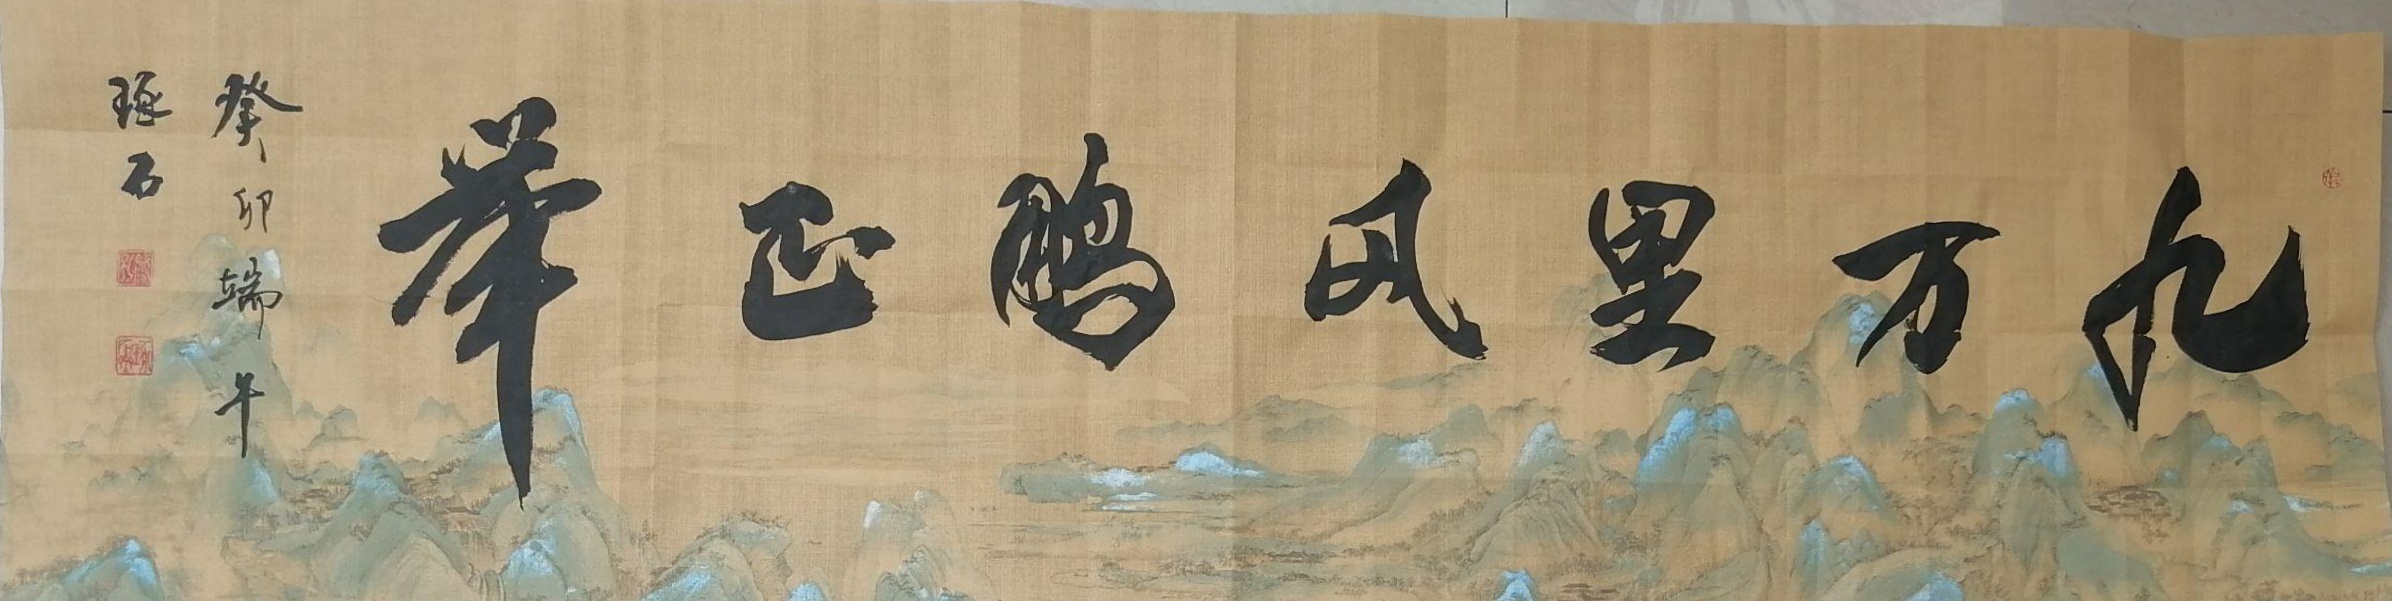 九万里风鹏正举
癸卯端午
琢石